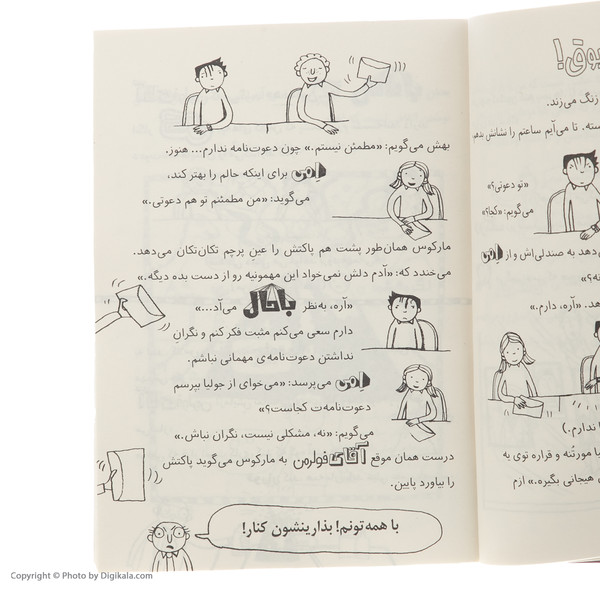 بهش می‌گویم: «مطمئن نیستم.» چون دعوت‌نامه ندارم... هنوز.
اِمی برای اینکه حالم را بهتر کند،
می‌گوید: «من مطمئنم تو هم دعوتی.»
مارکوس همان‌طور پشت هم پاکتش را عین پرچم تکان‌تکان می‌دهد.
می‌خندد که: «آدم دلش نمی‌خواد این مهمونیه رو از دست بده دیگه.»
«آره، به‌نظر باحال می‌آد...»
دارم سعی می‌کنم مثبت فکر کنم و نگرانِ
نداشتن دعوت‌نامه‌ی مهمانی نباشم.
اِمی می‌پرسد: «می‌خوای از جولیا بپرسم
دعوت‌نامه‌ت کجاست؟»
می‌گویم: «نه، مشکلی نیست، نگران نباش.»
درست همان موقع آقای فولرمن به مارکوس می‌گوید پاکتش
را بیاورد پایین.
با همه‌تونم! بذارینشون کنار!
بوق!
زنگ می‌زند.
سته. تا می‌آیم ساعتم را نشانش بدهم
«تو دعوتی؟»
می‌گویم: «کجا؟»
دهد به صندلی‌اش و از اِمی
نه؟»
دهد. «آره، دارم.»
ندارم.)
یا مورتُنه و قراره توی یه
هیجانی بگیره.» ازم
Copyright © Photo by Digikala.com